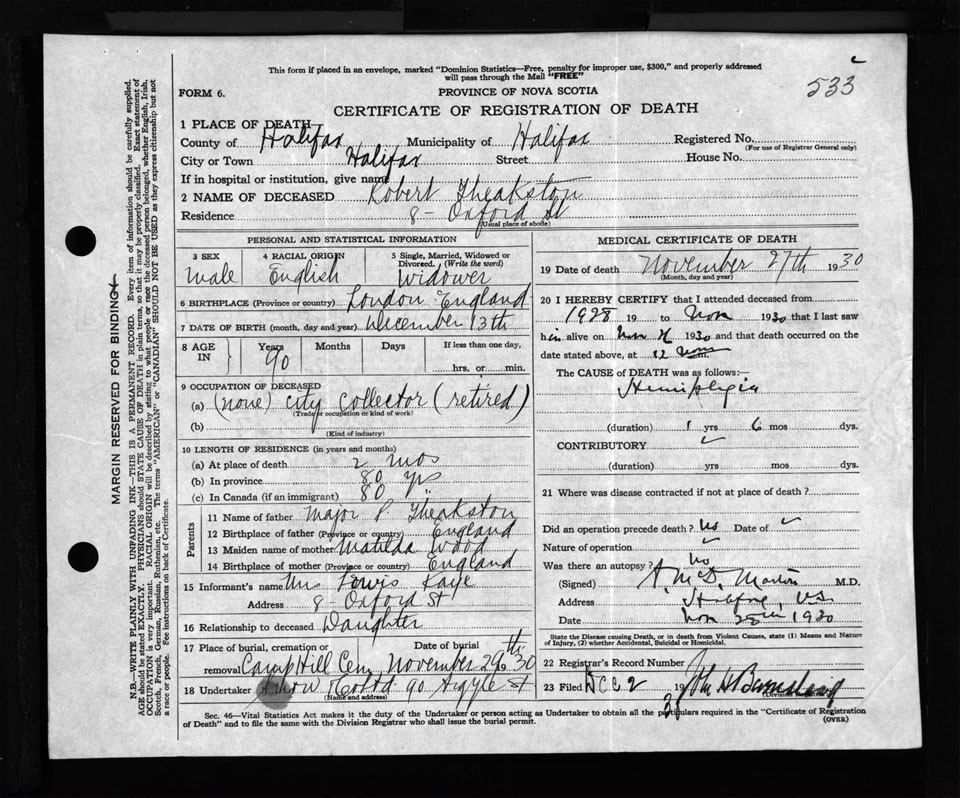 This form if placed in an envelope, marked "Dominion Statistics—Free, penalty for improper use, $300," and properly addressed
will pass through the Mail "FREE"
533
FORM 6.
PROVINCE OF NOVA SCOTIA
CERTIFICATE OF REGISTRATION OF DEATH
1 PLACE OF DEATH
County of Halifax Municipality of Halifax Registered No.
(For use of Registrar General only)
City or Town Halifax Street House No.
If in hospital or institution, give name
2 NAME OF DECEASED Robert Theakston
Residence 8 - Oxford St
(Usual place of abode)
PERSONAL AND STATISTICAL INFORMATION
3 SEX 4 RACIAL ORIGIN 5 Single, Married, Widowed or Divorced. (Write the word)
male English Widower
6 BIRTHPLACE (Province or country) London England
7 DATE OF BIRTH (month, day and year) December 13th
8 AGE IN Years Months Days If less than one day,
90 hrs. or min.
9 OCCUPATION OF DECEASED
(a) (none) city collector (retired)
(Trade, occupation or kind of work)
(b)
(Kind of industry)
10 LENGTH OF RESIDENCE (in years and months)
(a) At place of death 2 mos
(b) In province 80 yrs
(c) In Canada (if an immigrant) 80 "
Parents
11 Name of father Major P. Theakston
12 Birthplace of father (Province or country) England
13 Maiden name of mother Matilda Wood
14 Birthplace of mother (Province or country) England
15 Informant's name Mrs Kaye
Address 8 - Oxford St
16 Relationship to deceased Daughter
17 Place of burial, cremation or removal Date of burial
Camp Hill Cem November 29th 30
18 Undertaker Snow & Co Ltd 90 Argyle St
(Name and address)
MEDICAL CERTIFICATE OF DEATH
19 Date of death November 27th 1930
(Month, day and year)
20 I HEREBY CERTIFY that I attended deceased from
1928 19 to Nov 1930 that I last saw
him alive on Nov 1930 and that death occurred on the
date stated above, at 12 noon
The CAUSE of DEATH was as follows:—
Hemiplegia
(duration) 1 yrs 6 mos dys.
CONTRIBUTORY
(duration) yrs mos dys.
21 Where was disease contracted if not at place of death?
Did an operation precede death? No Date of
Nature of operation
Was there an autopsy? No
(Signed) A. McD. Morton M.D.
Address Halifax, N.S.
Date Nov 28th 1930
State the Disease causing Death, or in death from Violent Causes, state (1) Means and Nature
of Injury, (2) whether Accidental, Suicidal or Homicidal.
22 Registrar's Record Number
23 Filed Dec 2 19 John H Barnstead
Sec. 46—Vital Statistics Act makes it the duty of the Undertaker or person acting as Undertaker to obtain all the particulars required in the "Certificate of Registration
of Death" and to file the same with the Division Registrar who shall issue the burial permit. (OVER)
MARGIN RESERVED FOR BINDING
N.B.—WRITE PLAINLY WITH UNFADING INK—THIS IS A PERMANENT RECORD. Every item of information should be carefully supplied.
AGE should be stated EXACTLY. PHYSICIANS should STATE CAUSE OF DEATH in plain terms, so that it may be properly classified. Exact statement of
OCCUPATION is very important. RACIAL ORIGIN will be described by stating to what people or race the deceased person belonged, whether English, Irish,
Scotch, French, German, Russian, Ruthenian, etc. The terms "AMERICAN" or "CANADIAN" SHOULD NOT BE USED as they express citizenship but not
a race or people. See instructions on back of Certificate.